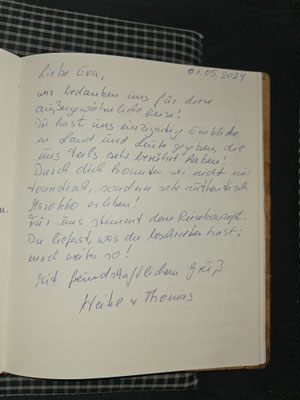 01.05.2024
Liebe Eva,
wir bedanken uns für diese
außergewöhnliche Reise!
Du hast uns einzigartig Einblicke
in Land und Leute gegeben, die
uns teils sehr berührt haben!
Durch dich konnten wir nicht nur
touristisch, sondern sehr authentisch
Marokko erleben!
Für uns stimmt dein Reisekonzept.
Du lieferst, was du beschrieben hast;
mach weiter so!
Mit freundschaftlichem Gruß
Heike + Thomas